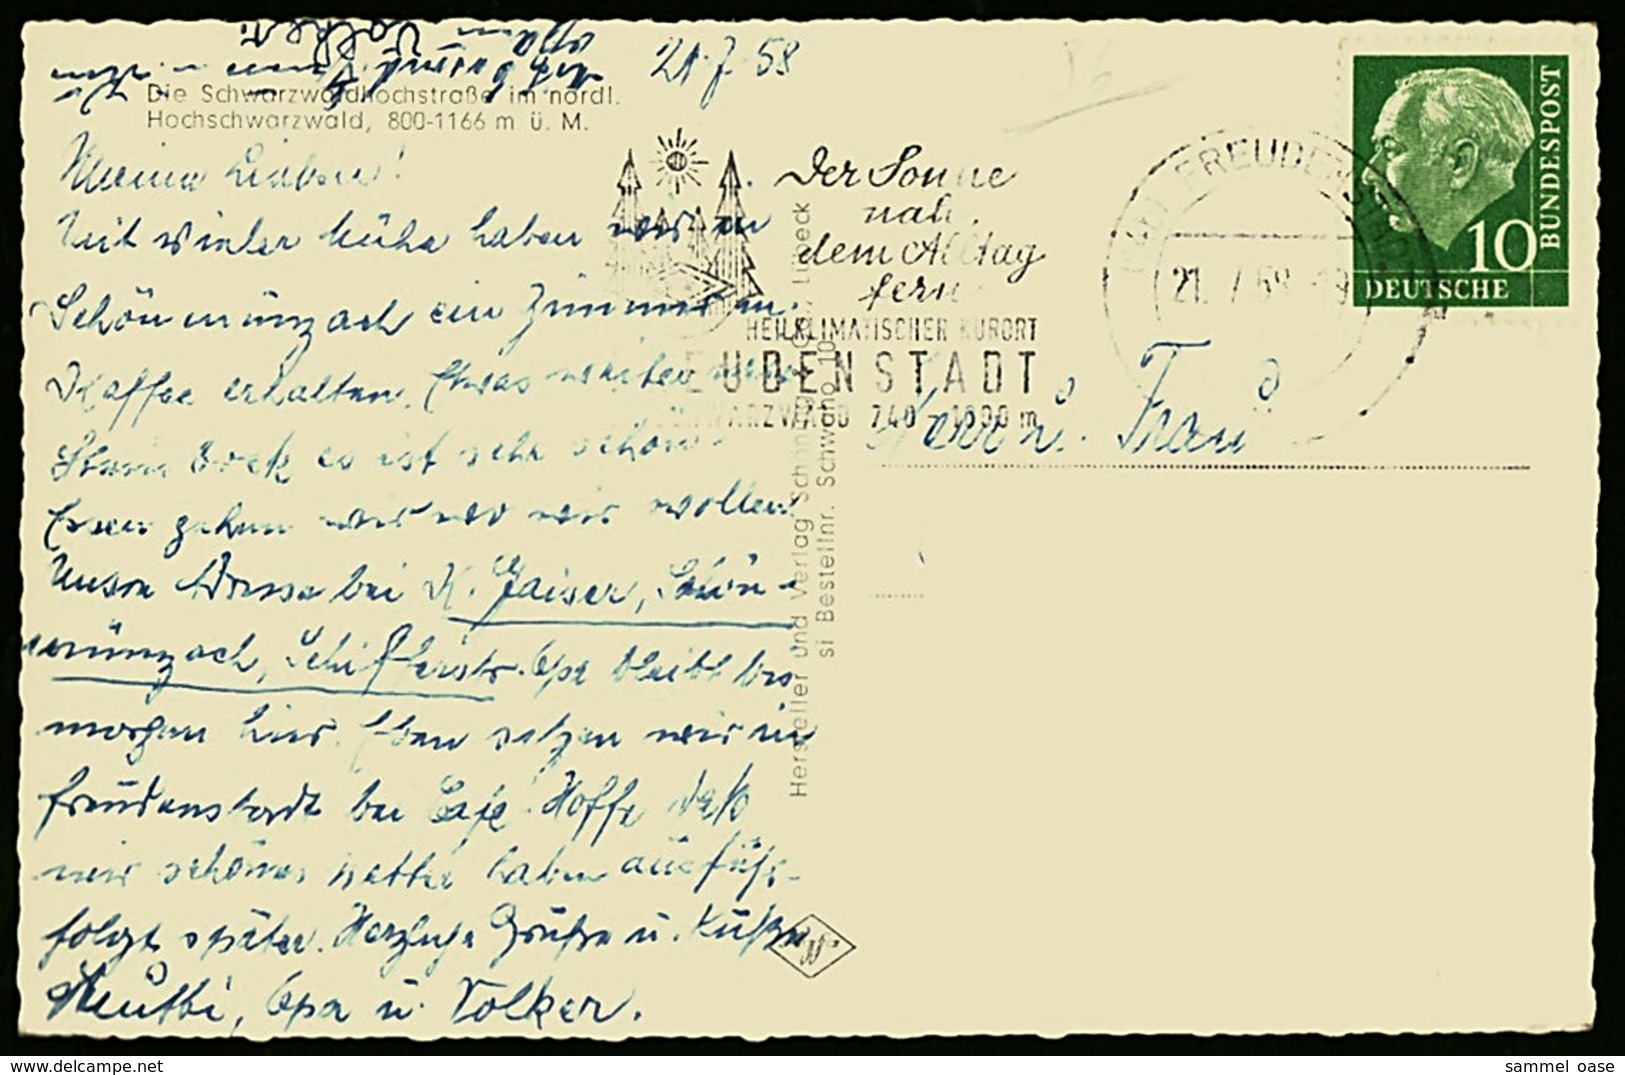 21.7.58
Die Schwarzwaldhochstraße im nördl.
Hochschwarzwald, 800-1166 m ü. M.
Meine Lieben!
Mit vieler Mühe haben wir in
Schönmünzach ein Zimmer m.
Kaffee erhalten. Etwas weiter vom
es ist sehr schön.
Essen gehen wir wo wir wollen.
Unsre Adresse bei K. Gaiser, Schön-
münzach, Schifferstr. Opa bleibt bis
morgen hier. Eben sitzen wir in
Freudenstadt bei Café Hoffe daß
wir schönes Wetter haben ausführ-
folgt später. Herzliche Grüße u. Küsse
Mutti, Opa u. Volker.
Der Sonne
nah,
dem Alltag
fern
HEILKLIMATISCHER KURORT
EUDENSTADT
SCHWARZWALD 740 - 1000 m
FREUDENSTADT
21. 7. 58 -19
BUNDESPOST
10
DEUTSCHE
Herrn u. Frau
Hersteller und Verlag Schöning & Co., Lübeck
si Bestellnr. Schwano 10
sammel oase